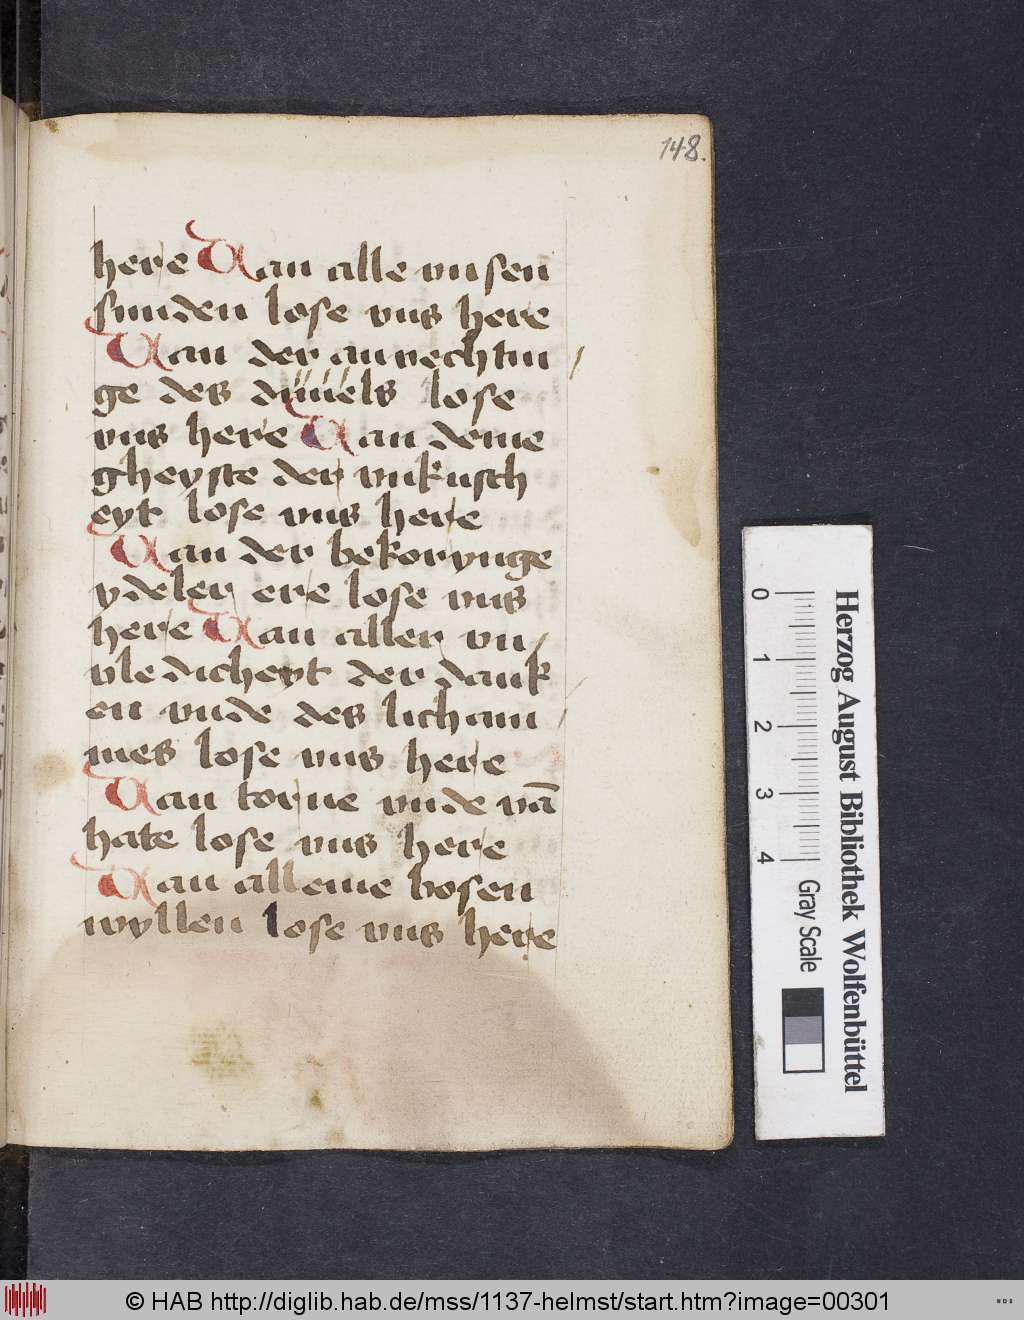 148.
here Van alle vnsen
sunden lose vns here
Van der anvechtin
ge des duuels lose
vns here Van deme
gheyste der vnkusch
eyt lose vns here
Van der bekorynge
ydeler ere lose vns
here Van aller vn
vledicheyt der dank
en vnde des licham
mes lose vns here
Van torne vnde vā
hate lose vns here
Van alleme bosen
wyllen lose vns here
Herzog August Bibliothek Wolfenbüttel
0 1 2 3 4
Gray Scale
© HAB http://diglib.hab.de/mss/1137-helmst/start.htm?image=00301